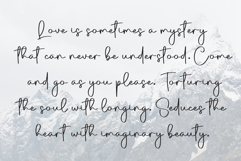 Love is sometimes a mystery
that can never be understood. Come
and go as you please. Torturing
the soul with longing. Seduces the
heart with imaginary beauty.